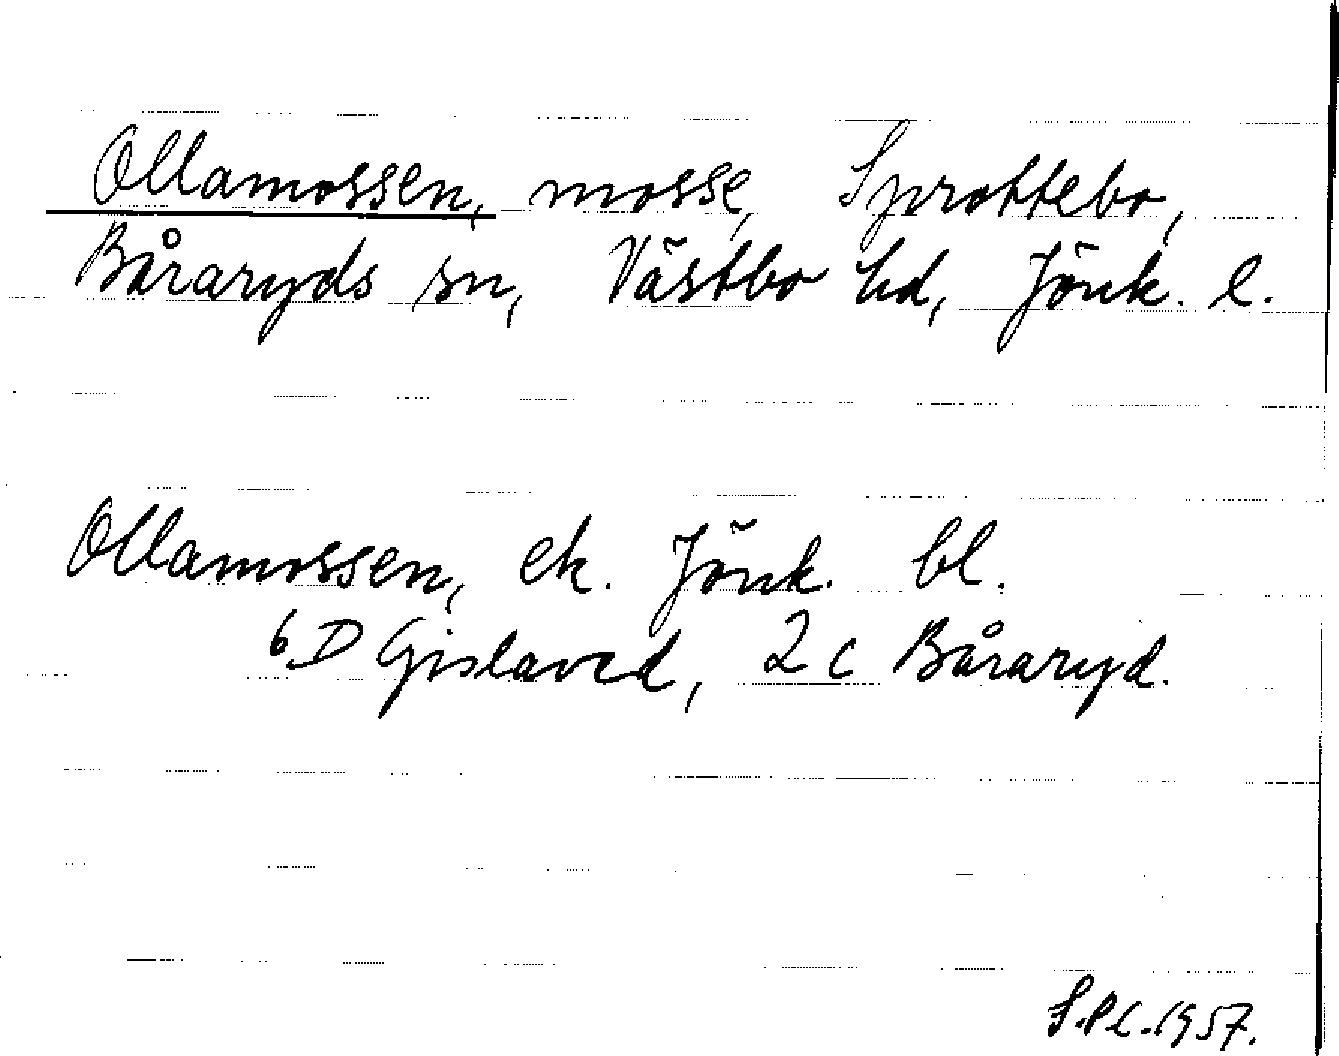 Ollamossen, mosse, Sprottebo,
Båraryds sn, Västbo hd, Jönk. l.
Ollamossen, ek. Jönk. bl.
6D Gislaved, 2c Båraryd.
S.P.L. 1957.